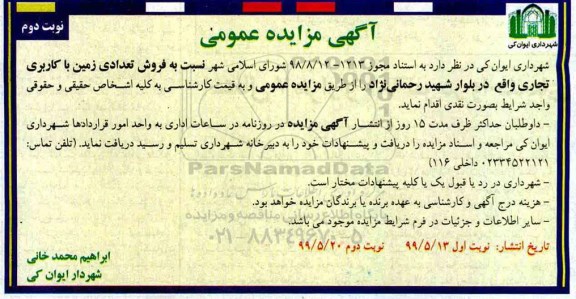 نوبت دوم
آگهی مزایده عمومی
شهرداری ایوان کی
شهرداری ایوان کی در نظر دارد به استناد مجوز ۱۲۱۳–۹۸/۸/۱۲ شورای اسلامی شهر نسبت به فروش تعدادی زمین با کاربری
تجاری واقع در بلوار شهید رحمانی‌نژاد را از طریق مزایده عمومی و به قیمت کارشناسی به کلیه اشخاص حقیقی و حقوقی
واجد شرایط بصورت نقدی اقدام نماید.
- داوطلبان حداکثر ظرف مدت ۱۵ روز از انتشار آگهی مزایده در روزنامه در ساعات اداری به واحد امور قراردادها شهرداری
ایوان کی مراجعه و اسناد مزایده را دریافت و پیشنهادات خود را به دبیرخانه شهرداری تسلیم و رسید دریافت نماید. (تلفن تماس:
۰۲۳۳۴۵۲۲۱۲۱ داخلی ۱۱۶)
- شهرداری در رد یا قبول یک یا کلیه پیشنهادات مختار است.
- هزینه درج آگهی و کارشناسی به عهده برنده یا برندگان مزایده خواهد بود.
- سایر اطلاعات و جزئیات در فرم شرایط مزایده موجود می باشد.
تاریخ انتشار: نوبت اول ۹۹/۵/۱۳ نوبت دوم ۹۹/۵/۲۰
ابراهیم محمد خانی
شهردار ایوان کی
ParsNamadData
۰۲۱-۸۸۳۴۹۶۷۰-۵